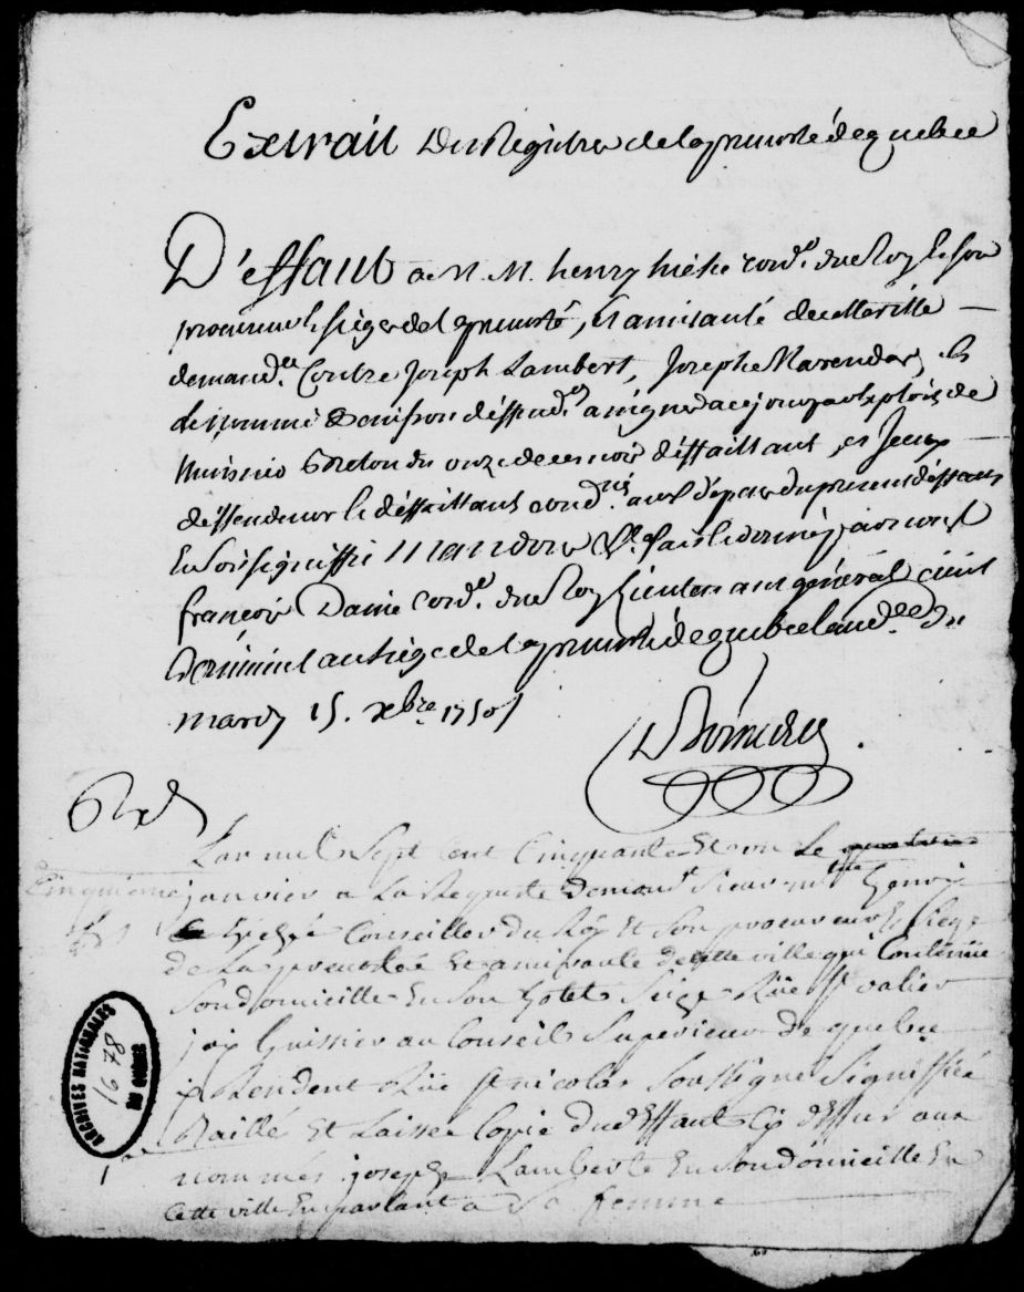 Extrait Des Registres de la prevosté de quebec
Deffaut a M. M. henry hiché cons.er du Roy & son
procureur le siege de la prevosté, et amirauté de cette ville
demand.r Contre Joseph Lambert, Joseph Marendas, et
le nommé Denisson deffend.rs assignés a ce jour par exploit de
huissier Breton du onze de ce mois deffaillant, et Jceux
deffendeurs & deffaillant cond.nés aux dépens du present deffaut
En soit signiffié Mandons &.a fait et donné par nous
françois Daine Con.er du Roy Lieutenant général civil
& criminel au siege de la prevosté de quebec le mardy
mardy 15. xbre 1750
Boisseau
L'an mil Sept Cent Cinquante Et un le
Cinquieme janvier a La Requeste de mons.r Sieur m.tre henri
hiché Conseiller du Roy Et Son procureur Le Siege
de La prevostée Et amirauté de cette ville qui Continüe
Son domicille En Son hotel Size Rüe St valier
jay huissier au Conseil Superieur de quebec
y Residant Rüe St nicolas Soussigné Signiffiée
Baillé Et Laissée Copie du deffaut Cy dessus aux
nommés joseph Lamberte En Son domicille En
Cette ville En parlant a Sa femme
ARCHIVES NATIONALES
1678
DU QUEBEC
1